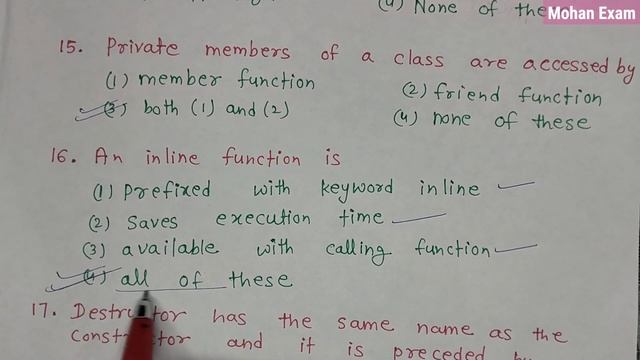 (4) None of these
Mohan Exam
15. Private members of a class are accessed by
(1) member function
(2) friend function
(3) both (1) and (2)
(4) none of these
16. An inline function is
(1) Prefixed with keyword inline
(2) Saves execution time
(3) available with calling function
(4) all of these
17. Destructor has the same name as the
constructor and it is preceded by